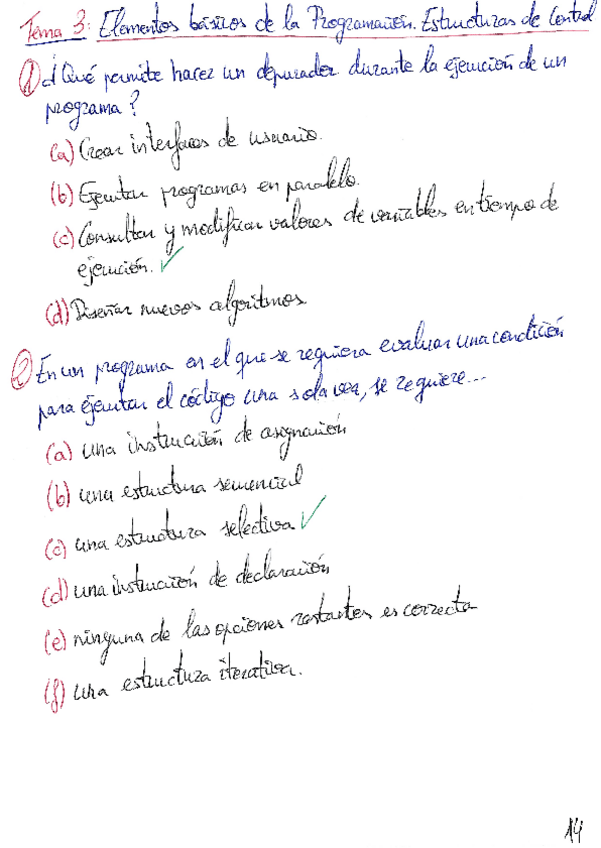 Tema 3: Elementos básicos de la Programación. Estructuras de Control
① ¿Qué permite hacer un depurador durante la ejecución de un
programa?
(a) Crear interfaces de usuario.
(b) Ejecutar programas en paralelo.
(c) Consultar y modificar valores de variables en tiempo de
ejecución. ✓
(d) Diseñar nuevos algoritmos
② En un programa en el que se requiera evaluar una condición
para ejecutar el código una sola vez, se requiere...
(a) una instrucción de asignación
(b) una estructura secuencial
(c) una estructura selectiva ✓
(d) una instrucción de declaración
(e) ninguna de las opciones restantes es correcta
(f) una estructura iterativa.
14